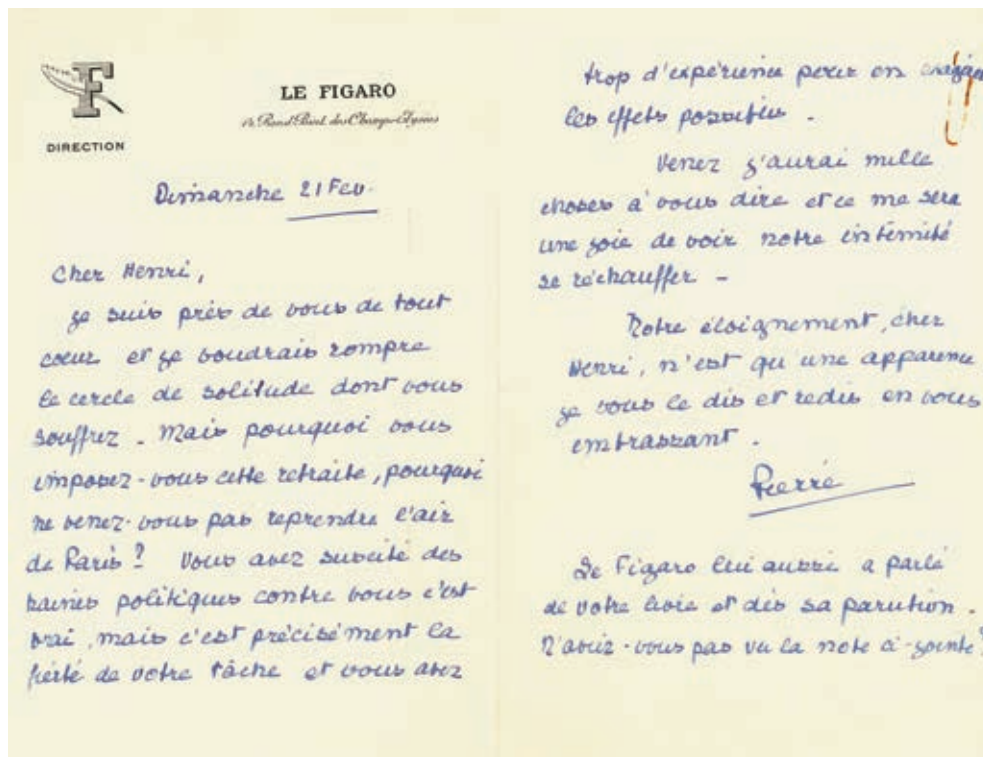 F
DIRECTION
LE FIGARO
14 Rond-Point des Champs-Elysées
Dimanche 21 Fev.
Cher Henri,
je suis près de vous de tout
cœur et je voudrais rompre
le cercle de solitude dont vous
souffrez. Mais pourquoi vous
imposez-vous cette retraite, pourquoi
ne venez-vous pas reprendre l'air
de Paris ? Vous avez suscité des
haines politiques contre vous c'est
vrai, mais c'est précisément la
fierté de votre tâche et vous avez
trop d'expérience pour en
les effets possibles.
Venez j'aurai mille
choses à vous dire et ce me sera
une joie de voir notre intimité
se réchauffer -
Notre éloignement, cher
Henri, n'est qu'une apparence
je vous le dis et redis en vous
embrassant.
Pierre
Le Figaro lui aussi a parlé
de votre livre et dès sa parution.
N'aviez-vous pas vu la note ci-jointe ?